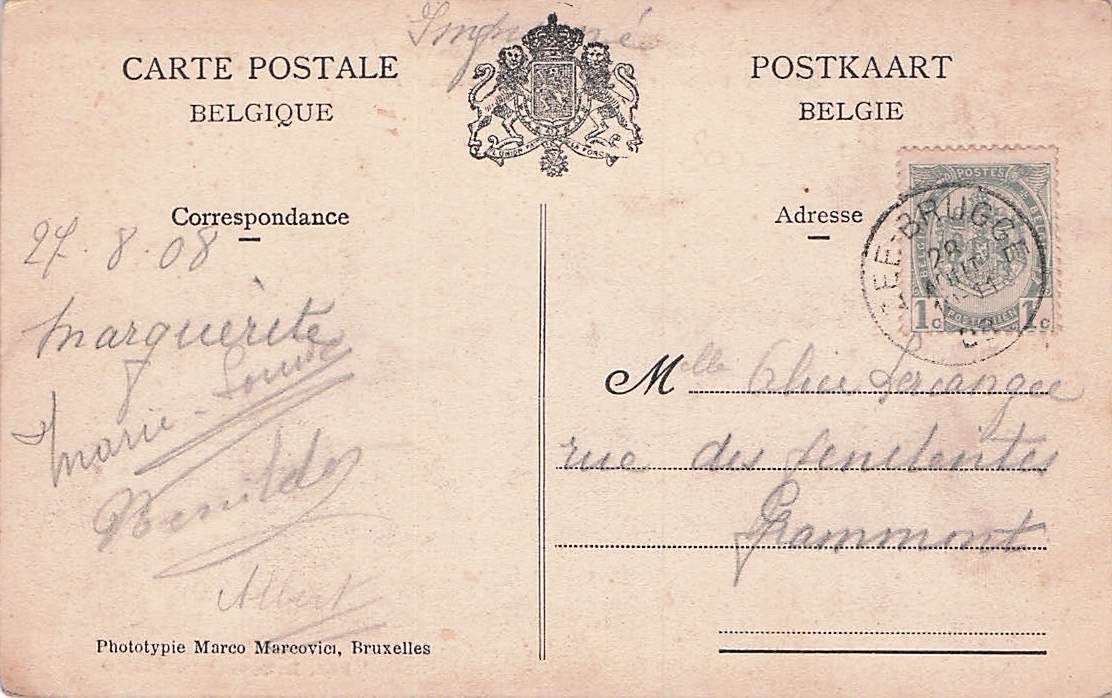 Imprimé
CARTE POSTALE
BELGIQUE
POSTKAART
BELGIE
L'UNION FAIT LA FORCE
Correspondance
Adresse
POSTES
1c 1c
ZEE-BRUGGE
28
AOUT
08
27.8.08
Marguérite
Marie-Louise
Albert
Mlle Alice
rue des Penitentes
Grammont
Phototypie Marco Marcovici, Bruxelles